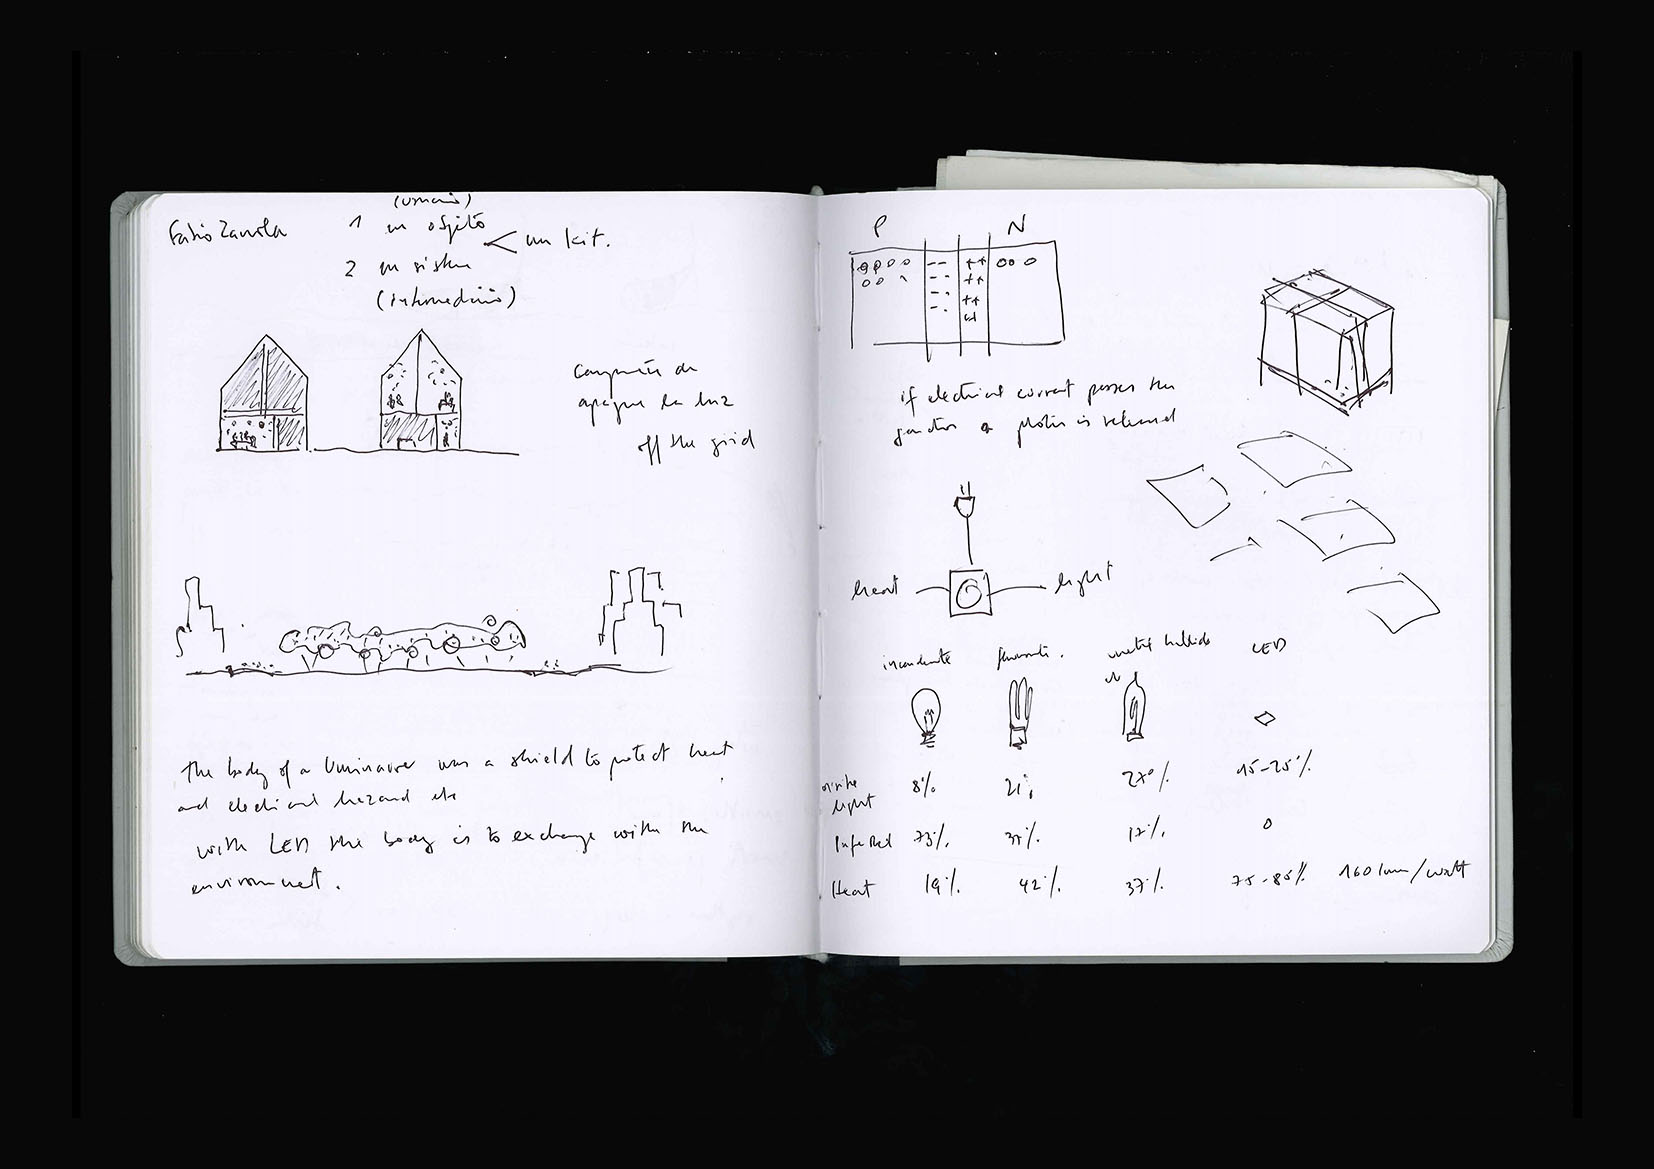 (usuario)
1 un objeto
un kit.
2 un sistema
(intermediario)
apague la luz
off the grid
The body of a luminaire was a shield to protect heat
and electrical hazard etc
with LED the body is to exchange with the
environment.
P N
if electrical current passes the
junction a photon is released
heat light
incandescente metal halide LED
visible
light 8% 21% 27% 15-25%
Infe Red 73% 37% 17% 0
Heat 19% 42% 37% 75-85% 160 lum/watt